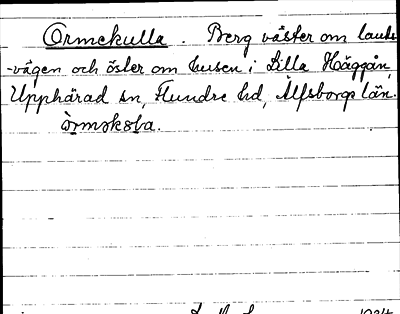 Ormekulla. Berg väster om lands-
-vägen och öster om husen i Lilla Häggån,
Upphärad sn, Flundre hd, Älfsborgs län.